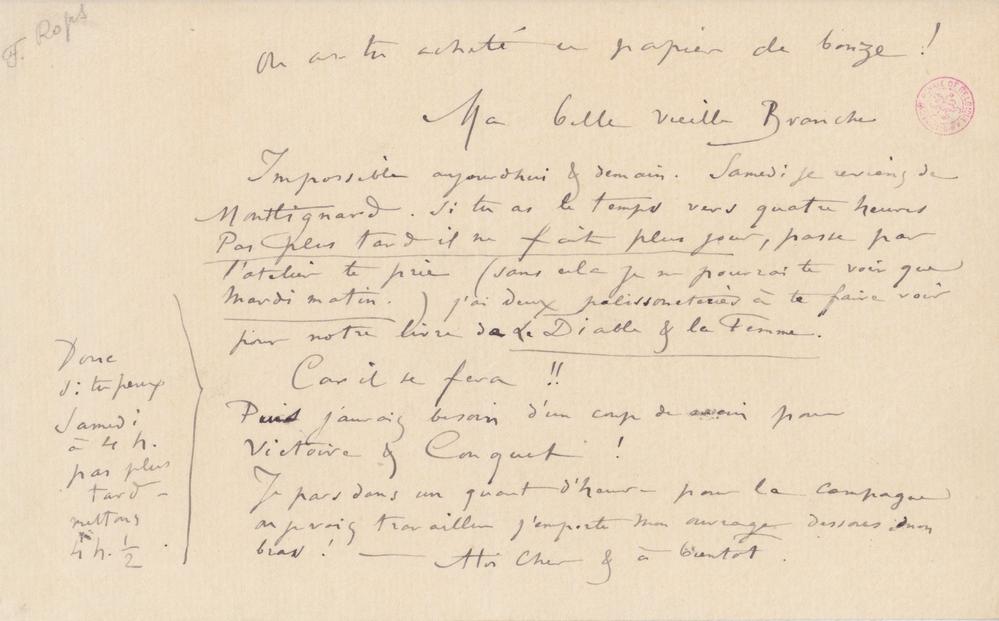 F. Rops
Où as tu acheté ce papier de bonze !
Ma belle vieille Branche
Impossible aujourdhui & demain. Samedi je reviens de
Montlignard. Si tu as le temps vers quatre heures
Pas plus tard il ne fait plus jour, passe par
l'atelier te prie (sans cela je ne pourrai te voir que
Mardi matin.) j'ai deux polissonneries à te faire voir
pour notre livre de Le Diable & la Femme.
Car il se fera !!
Puis j'aurais besoin d'un coup de main pour
Victoire & Conquet !
Je pars dans un quart d'heure pour la campagne
où je vais travailler j'emporte mon ouvrage dessous mon
bras ! — Cher & à bientôt.
Donc
si tu peux
Samedi
à 4 h.
pas plus
tard –
mettons
4 h. ½